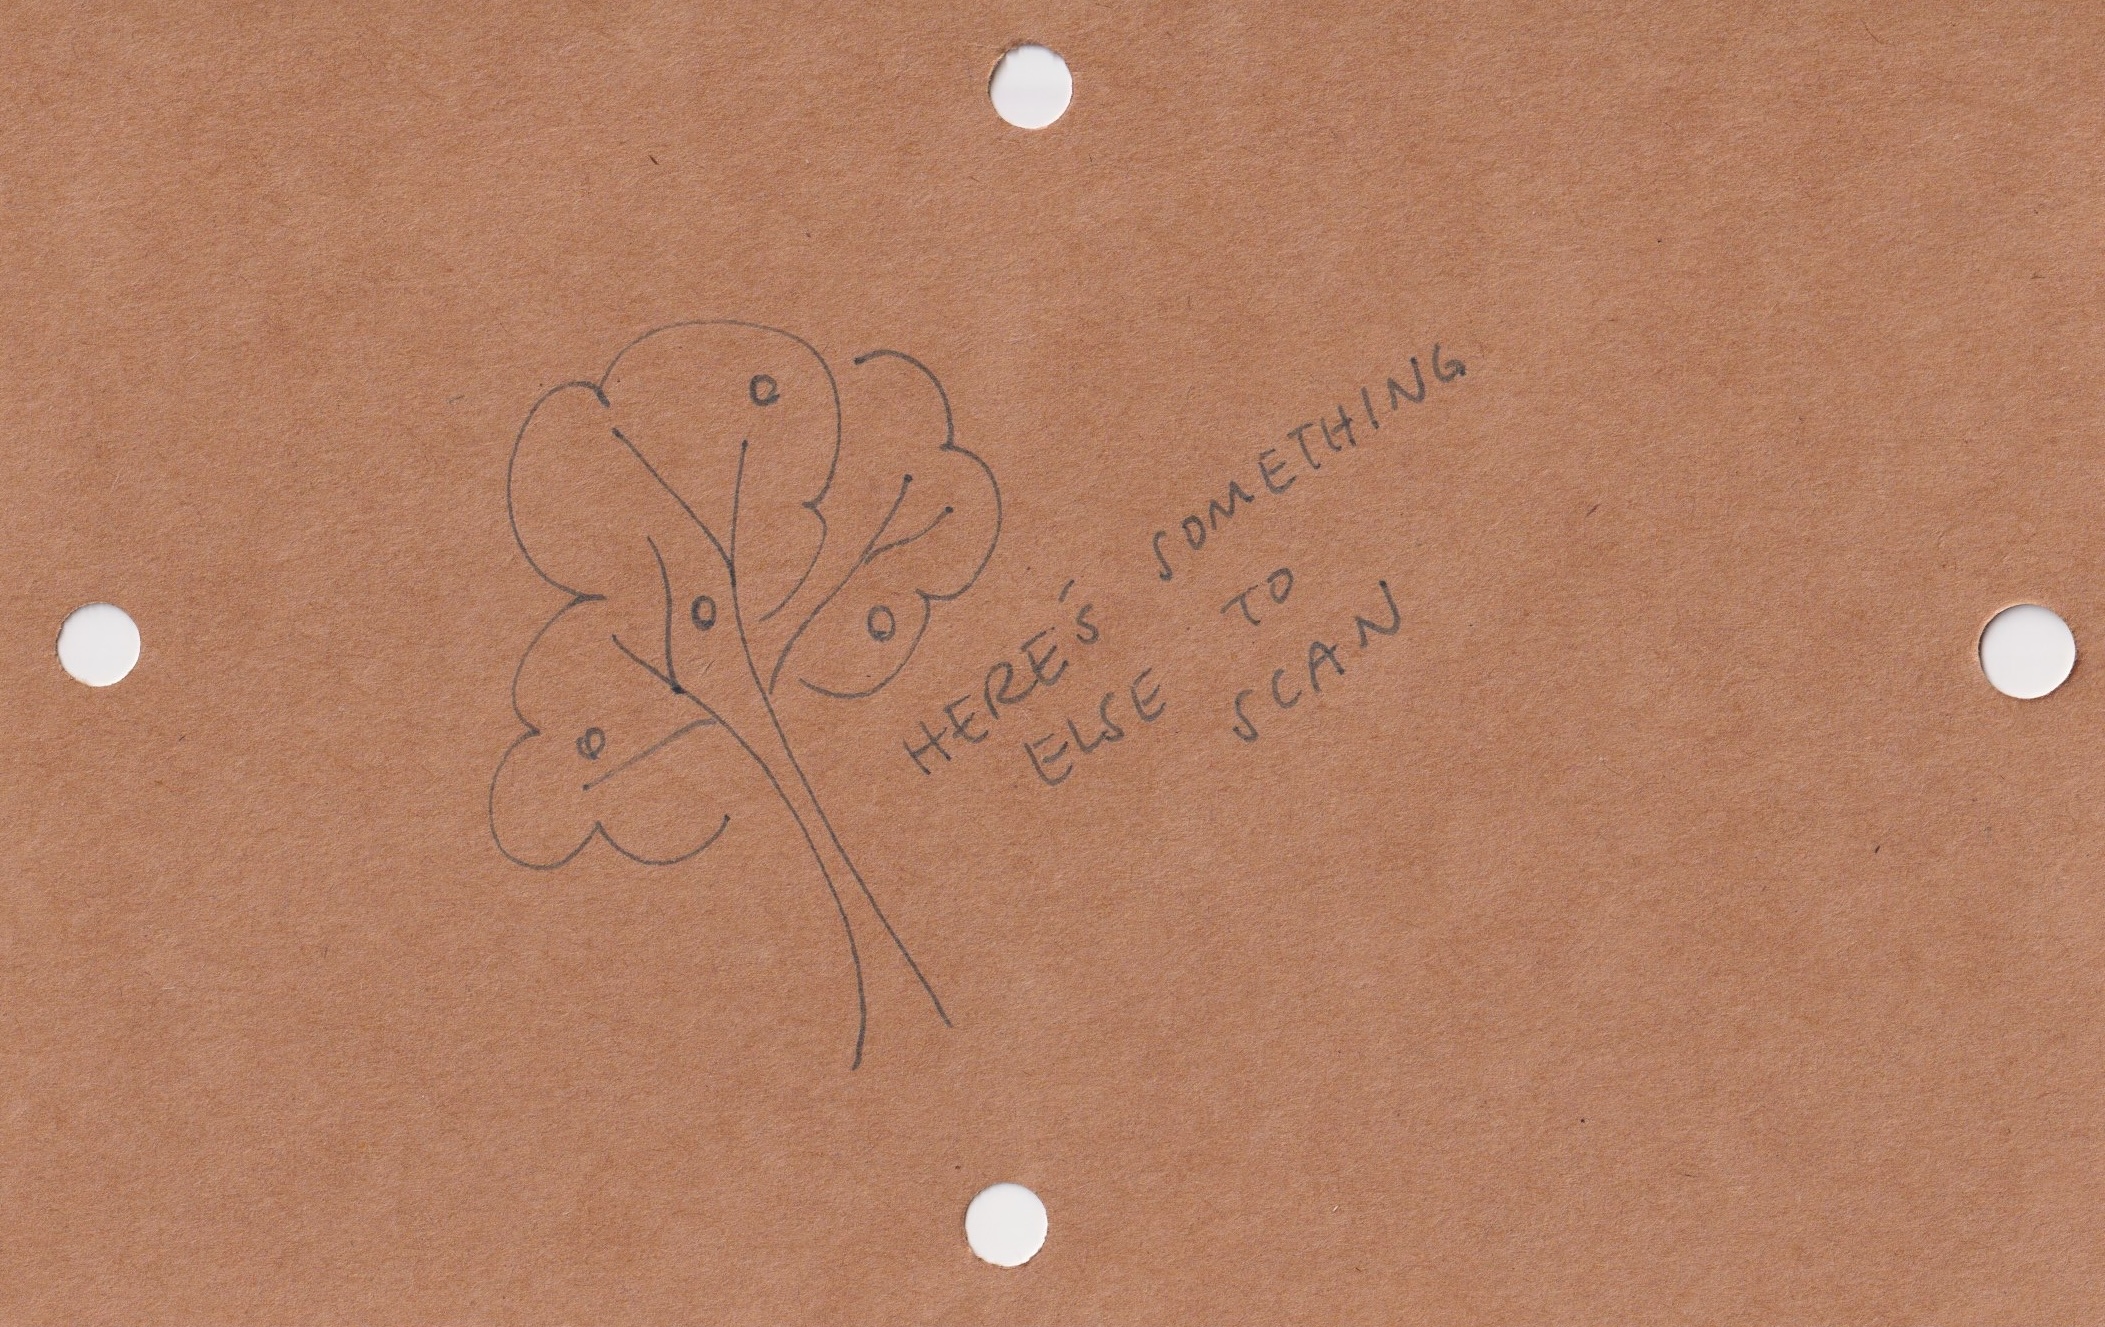 HERE'S SOMETHING
ELSE TO
SCAN